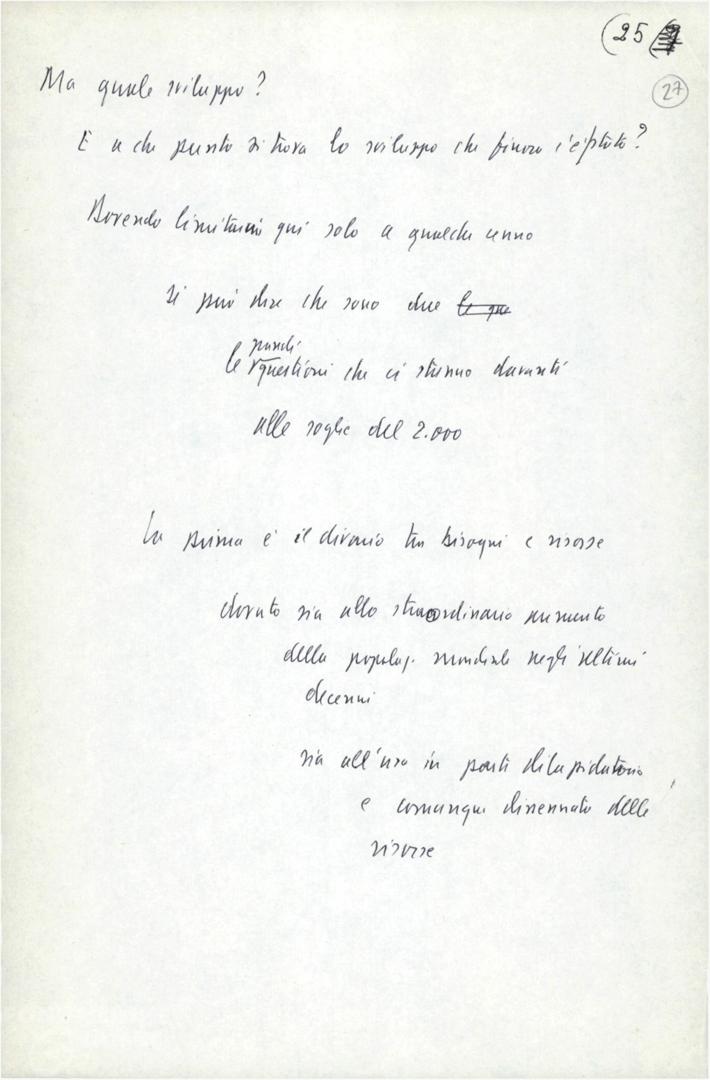 (25
27
Ma quale sviluppo?
E a che punto si trova lo sviluppo che finora c'è stato?
Dovendo limitarmi qui solo a qualche cenno
si può dire che sono due le que
grandi
le questioni che ci stanno davanti
alle soglie del 2.000
La prima è il divario tra bisogni e risorse
dovuto sia allo straordinario aumento
della popolaz. mondiale negli ultimi
decenni
sia all'uso in parte dilapidatorio
e comunque dissennato delle
risorse